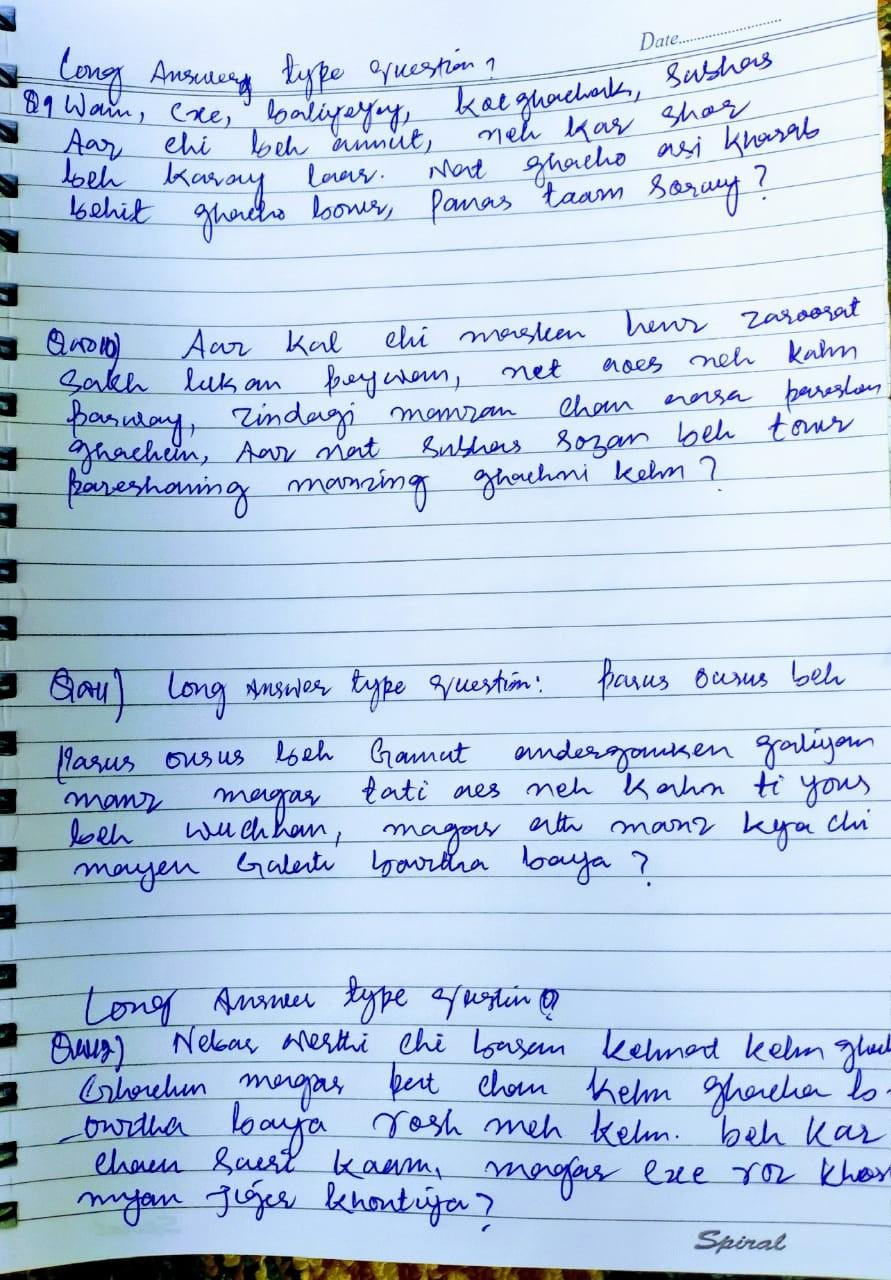 Date
Long Answer type question?
Q9 Wain, exe, baliyeyay, kotghachak, Subhas
Aar chi beh annut, neh kar shor
beh karay laar. Nat ghacho asi kharab
behit ghacho bonr, Panas taam Soray?
Aar kal chi masken henz zaroorat
Sakh lukan peywan, net aes neh kahn
paray, zindagi manzan chan aasa pareshan
ghachein, Aar nat Subhas sozan beh tour
pareshaning manzing ghachni kehn?
Long Answer type question: parus ousus beh
Parus ousus beh Gamut andergamken galiyan
manz magar tati aes neh kahn ti yous
beh wuchhan, magar ath manz kya chi
mayen Galati bavdha baya?
Long Answer type question?
Nebar nerthi chi basan kehnat kehn
Ghachun magar pert chan kehn ghacha bo-
-owdha baya rosh meh kehn. beh kar
chaen saeri kaam, magar exe roz khos
myan jiger khontiya?
Spiral